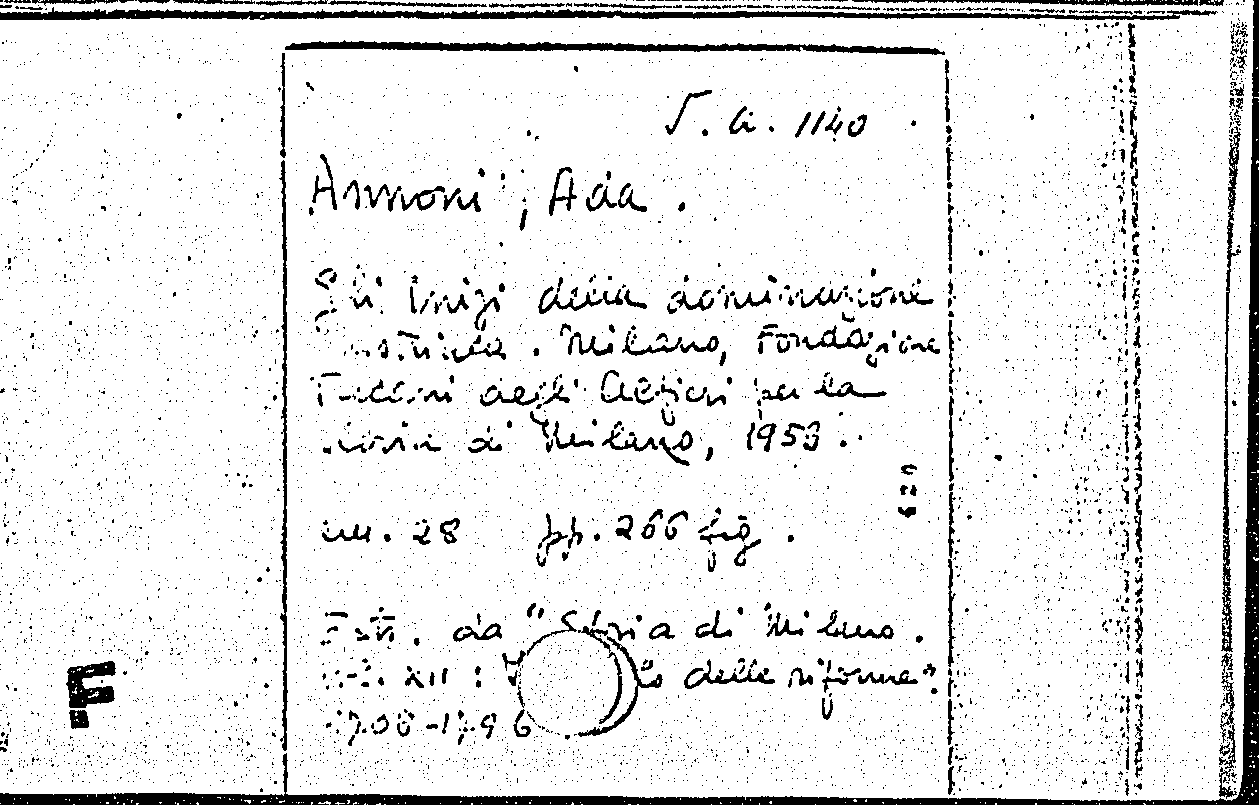 G. 1140
Annoni, Ada.
Gli Inizi della dominazione
austriaca. Milano, Fondazione
Treccani degli Alfieri per la
storia di Milano, 1953.
029
cm. 28 pp. 266 fig.
Estr. da "Storia di Milano.
XII: delle riforme".
1706-1796
F